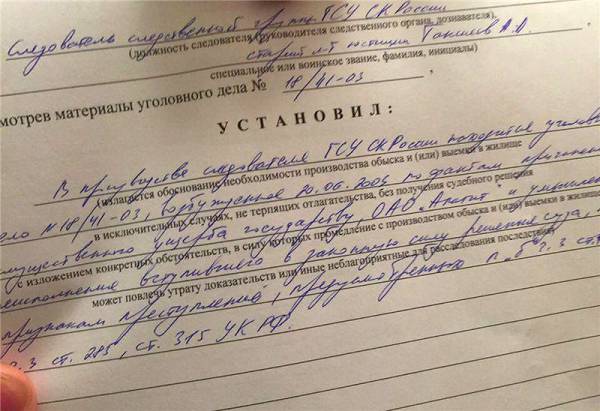 Следователь следственной группы ГСУ СК России
(должность следователя (руководителя следственного органа, дознавателя),
старший л-т юстиции А.А.
специальное или воинское звание, фамилия, инициалы)
мотрев материалы уголовного дела № 18/41-03 ,
УСТАНОВИЛ:
В производстве следователя ГСУ СК России находится уголовн
(излагается обоснование необходимости производства обыска и (или) выемки в жилище
ло №18/41-03, возбужденное 20.06.2003 по фактам причинен
в исключительных случаях, не терпящих отлагательства, без получения судебного решения
мущественного ущерба государству, ОАО „Апатит" и умышлен
с изложением конкретных обстоятельств, в силу которых промедление с производством обыска и (или) выемки в жилище
неисполнения вступившего в законную силу решения суда,
может повлечь утрату доказательств или иные неблагоприятные для расследования последствия)
признакам преступлений, предусмотренных п. „б" ч. 3 ст.
ч. 3 ст. 285, ст. 315 УК РФ.